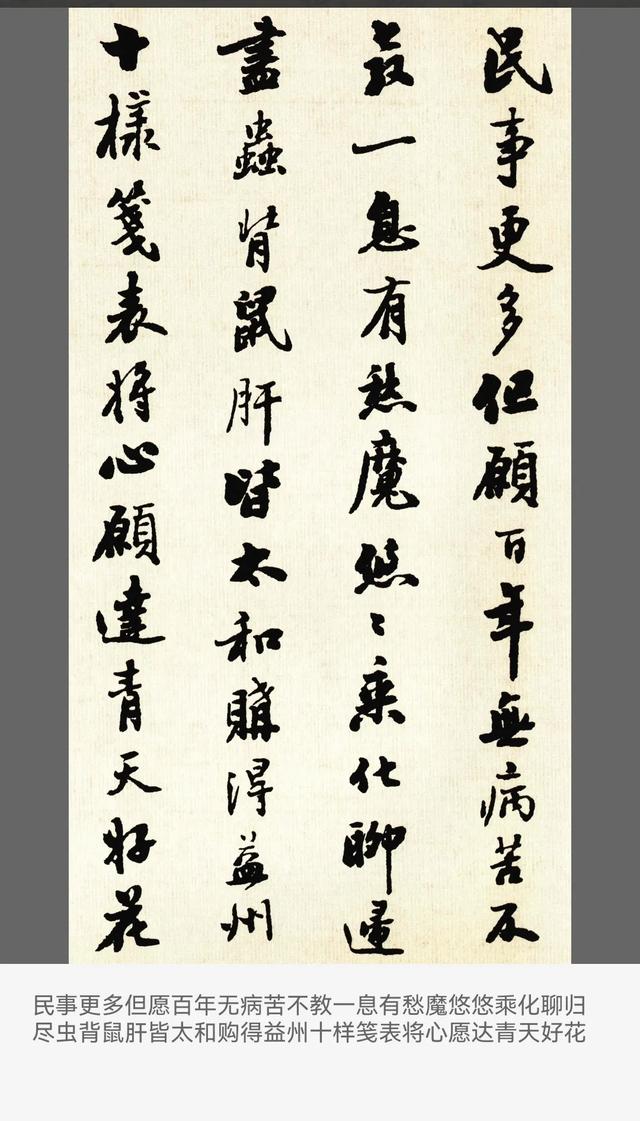 民事更多但願百年無病苦不
教一息有愁魔悠〻乘化聊歸
盡蟲背鼠肝皆太和購得益州
十樣箋表將心願達青天好花
民事更多但愿百年无病苦不教一息有愁魔悠悠乘化聊归
尽虫背鼠肝皆太和购得益州十样笺表将心愿达青天好花